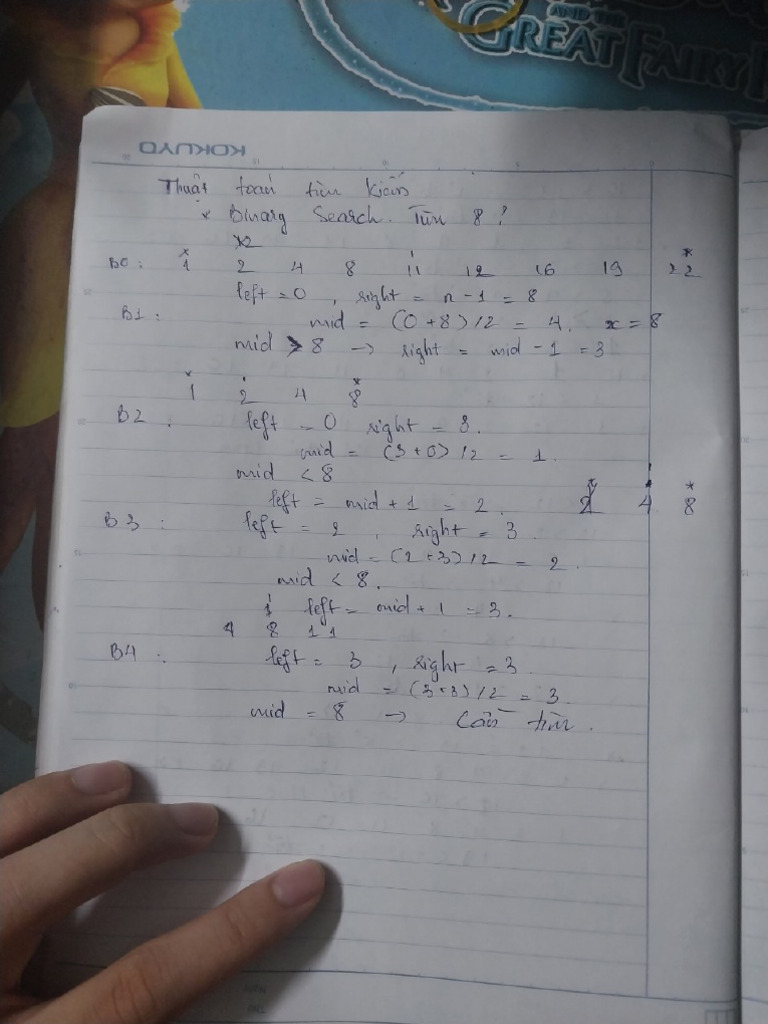 AND THE
GREAT FAIRY
KOKUYO
Thuật toán tìm kiếm
* Binary Search. Tìm 8?
B0: 1 2 4 8 11 12 16 19 22
left = 0, right = n - 1 = 8
B1: mid = (0 + 8) / 2 = 4. x = 8
mid > 8 → right = mid - 1 = 3
1 2 4 8
B2: left = 0 right = 3.
mid = (3 + 0) / 2 = 1.
mid < 8
left = mid + 1 = 2. 2 4 8
B3: left = 2, right = 3
mid = (2 + 3) / 2 = 2.
mid < 8.
left = mid + 1 = 3.
4 8 11
B4: left = 3, right = 3
mid = (3 + 3) / 2 = 3.
mid = 8 → Cần tìm.